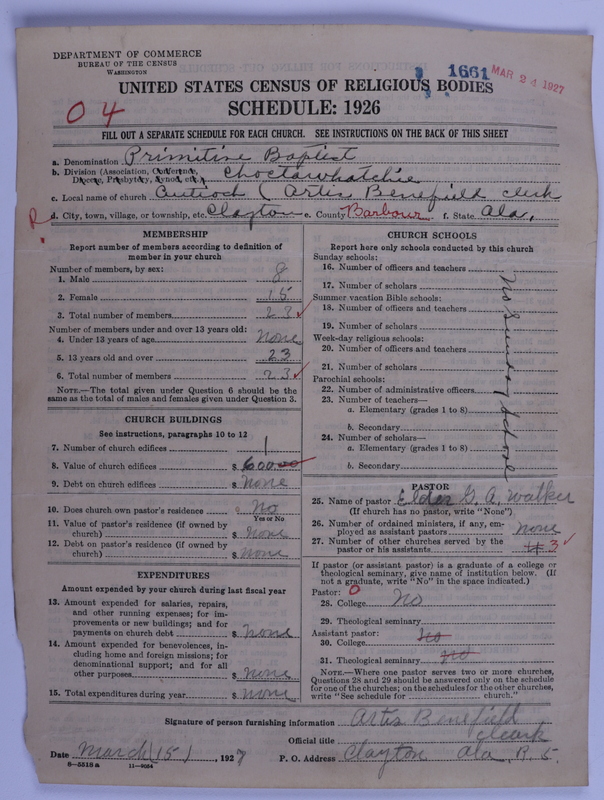 DEPARTMENT OF COMMERCE
BUREAU OF THE CENSUS
WASHINGTON
1661
MAR 24 1927
UNITED STATES CENSUS OF RELIGIOUS BODIES
04
SCHEDULE: 1926
FILL OUT A SEPARATE SCHEDULE FOR EACH CHURCH. SEE INSTRUCTIONS ON THE BACK OF THIS SHEET
a. Denomination Primitive Baptist
b. Division (Association, Conference, Diocese, Presbytery, Synod, etc.) Choctawhatchie
c. Local name of church Antioch (Artis Benefield clerk
R. d. City, town, village, or township, etc. Clayton e. County Barbour f. State Ala,
MEMBERSHIP
Report number of members according to definition of member in your church
Number of members, by sex:
1. Male 8
2. Female 15
3. Total number of members 23
Number of members under and over 13 years old:
4. Under 13 years of age None
5. 13 years old and over 23
6. Total number of members 23
NOTE.—The total given under Question 6 should be the same as the total of males and females given under Question 3.
CHURCH BUILDINGS
See instructions, paragraphs 10 to 12
7. Number of church edifices 1
8. Value of church edifices $ 600.00
9. Debt on church edifices $ None
10. Does church own pastor's residence No
Yes or No
11. Value of pastor's residence (if owned by church) $ None
12. Debt on pastor's residence (if owned by church) $ None
EXPENDITURES
Amount expended by church during last fiscal year
13. Amount expended for salaries, repairs, and other running expenses; for improvements or new buildings; and for payments on church debt $ None
14. Amount expended for benevolences, including home and foreign missions; for denominational support; and for all other purposes $ None
15. Total expenditures during year $ None
CHURCH SCHOOLS
Report here only schools conducted by this church
Sunday schools:
16. Number of officers and teachers
17. Number of scholars
Summer vacation Bible schools:
18. Number of officers and teachers
19. Number of scholars
Week-day religious schools:
20. Number of officers and teachers
21. Number of scholars
Parochial schools:
22. Number of administrative officers
23. Number of teachers—
a. Elementary (grades 1 to 8)
b. Secondary
24. Number of scholars—
a. Elementary (grades 1 to 8)
b. Secondary
No Sunday School
PASTOR
25. Name of pastor Elder G. A. Walker
(If church has no pastor, write "None")
26. Number of ordained ministers, if any, employed as assistant pastors None
27. Number of other churches served by the pastor or his assistants 4 3
If pastor (or assistant pastor) is a graduate of a college or theological seminary, give name of institution below. (If not a graduate, write "No" in the space indicated.)
Pastor: 0
28. College No
29. Theological seminary
Assistant pastor:
30. College No
31. Theological seminary No
NOTE.—Where one pastor serves two or more churches, Questions 28 and 29 should be answered only on the schedule for one of the churches; on the schedules for the other churches, write "See schedule for church."
Signature of person furnishing information Artis Benefield
Official title Clerk
Date March (15), 1927
P. O. Address Clayton Ala, R. 5.
8—5518 a 11—9094